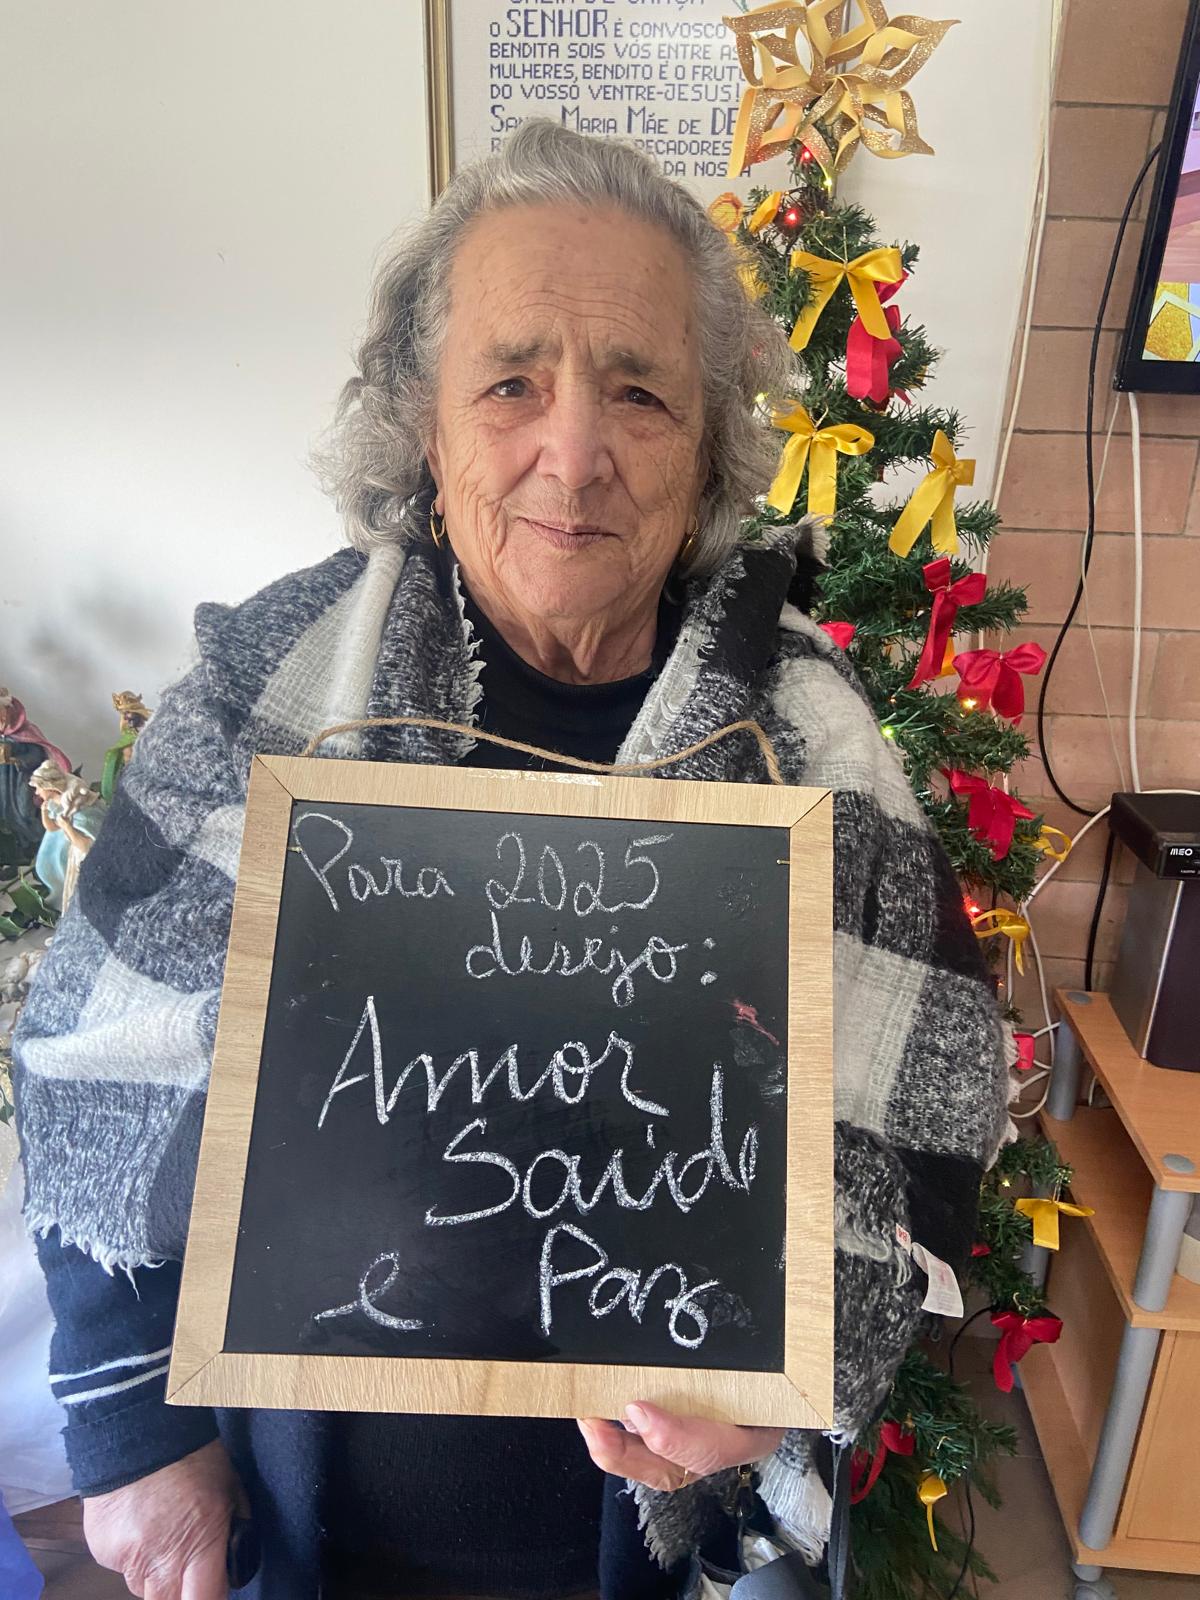 O SENHOR É CONVOSCO
BENDITA SOIS VÓS ENTRE AS
MULHERES, BENDITO É O FRUTO
DO VOSSO VENTRE-JESUS!
MARIA MÃE DE
PECADORES
DA NOSSA
MEO
Para 2025
desejo:
Amor
Saúde
e Paz